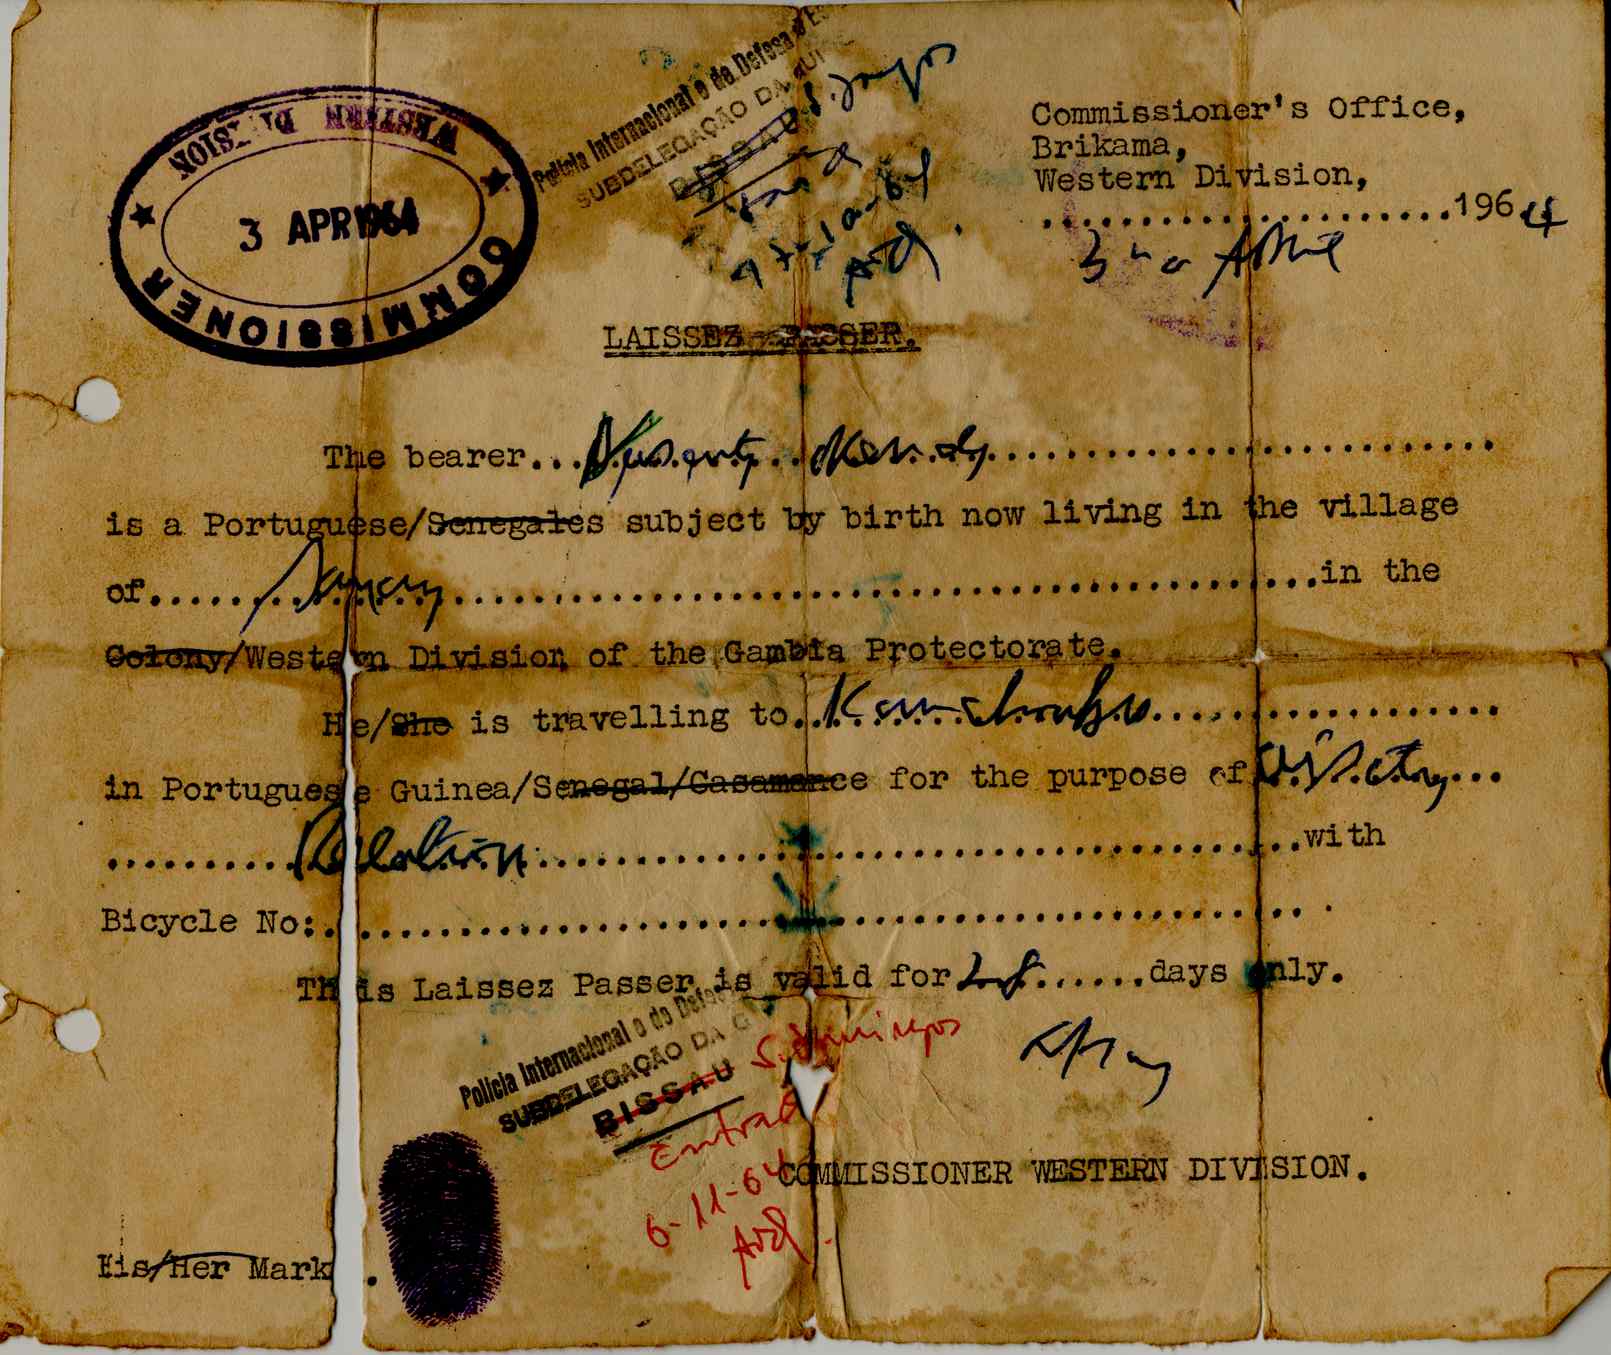 WESTERN DIVISION
3 APR 1964
COMMISSIONER
Policia Internacional e de Defesa
SUBDELEGAÇÃO DA
BISSAU
Commissioner's Office,
Brikama,
Western Division,
....................1964
3rd April
LAISSEZ PASSER.
The bearer...
is a Portuguese/Senegales subject by birth now living in the village
of..........in the
Colony/Western Division of the Gambia Protectorate.
He/She is travelling to..
in Portuguese Guinea/Senegal/Casamance for the purpose of Visiting...
..........Relation..........with
Bicycle No:..........
This Laissez Passer is valid for 28......days only.
Policia Internacional e de Defesa
SUBDELEGAÇÃO DA G
BISSAU S. Domingos
Entrada
6-11-64
COMMISSIONER WESTERN DIVISION.
His/Her Mark .